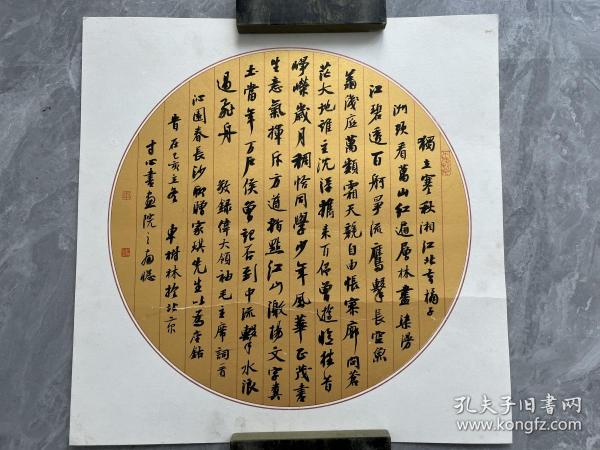 獨立寒秋湘江北去橘子
洲頭看萬山紅遍層林盡染漫
江碧透百舸爭流鷹擊長空魚
翔淺底萬類霜天競自由悵寥廓問蒼
茫大地誰主沉浮攜來百侶曾遊憶往昔
崢嶸歲月稠恰同學少年風華正茂書
生意氣揮斥方遒指點江山激揚文字糞
土當年万戶侯曾記否到中流擊水浪
遏飛舟 敬錄偉大領袖毛主席詞一首
沁園春長沙 贈家琪先生以為存
昔在己亥之冬 車樹林於北京
寸心書畫院之南窗
孔夫子旧書网
www.kongfz.com